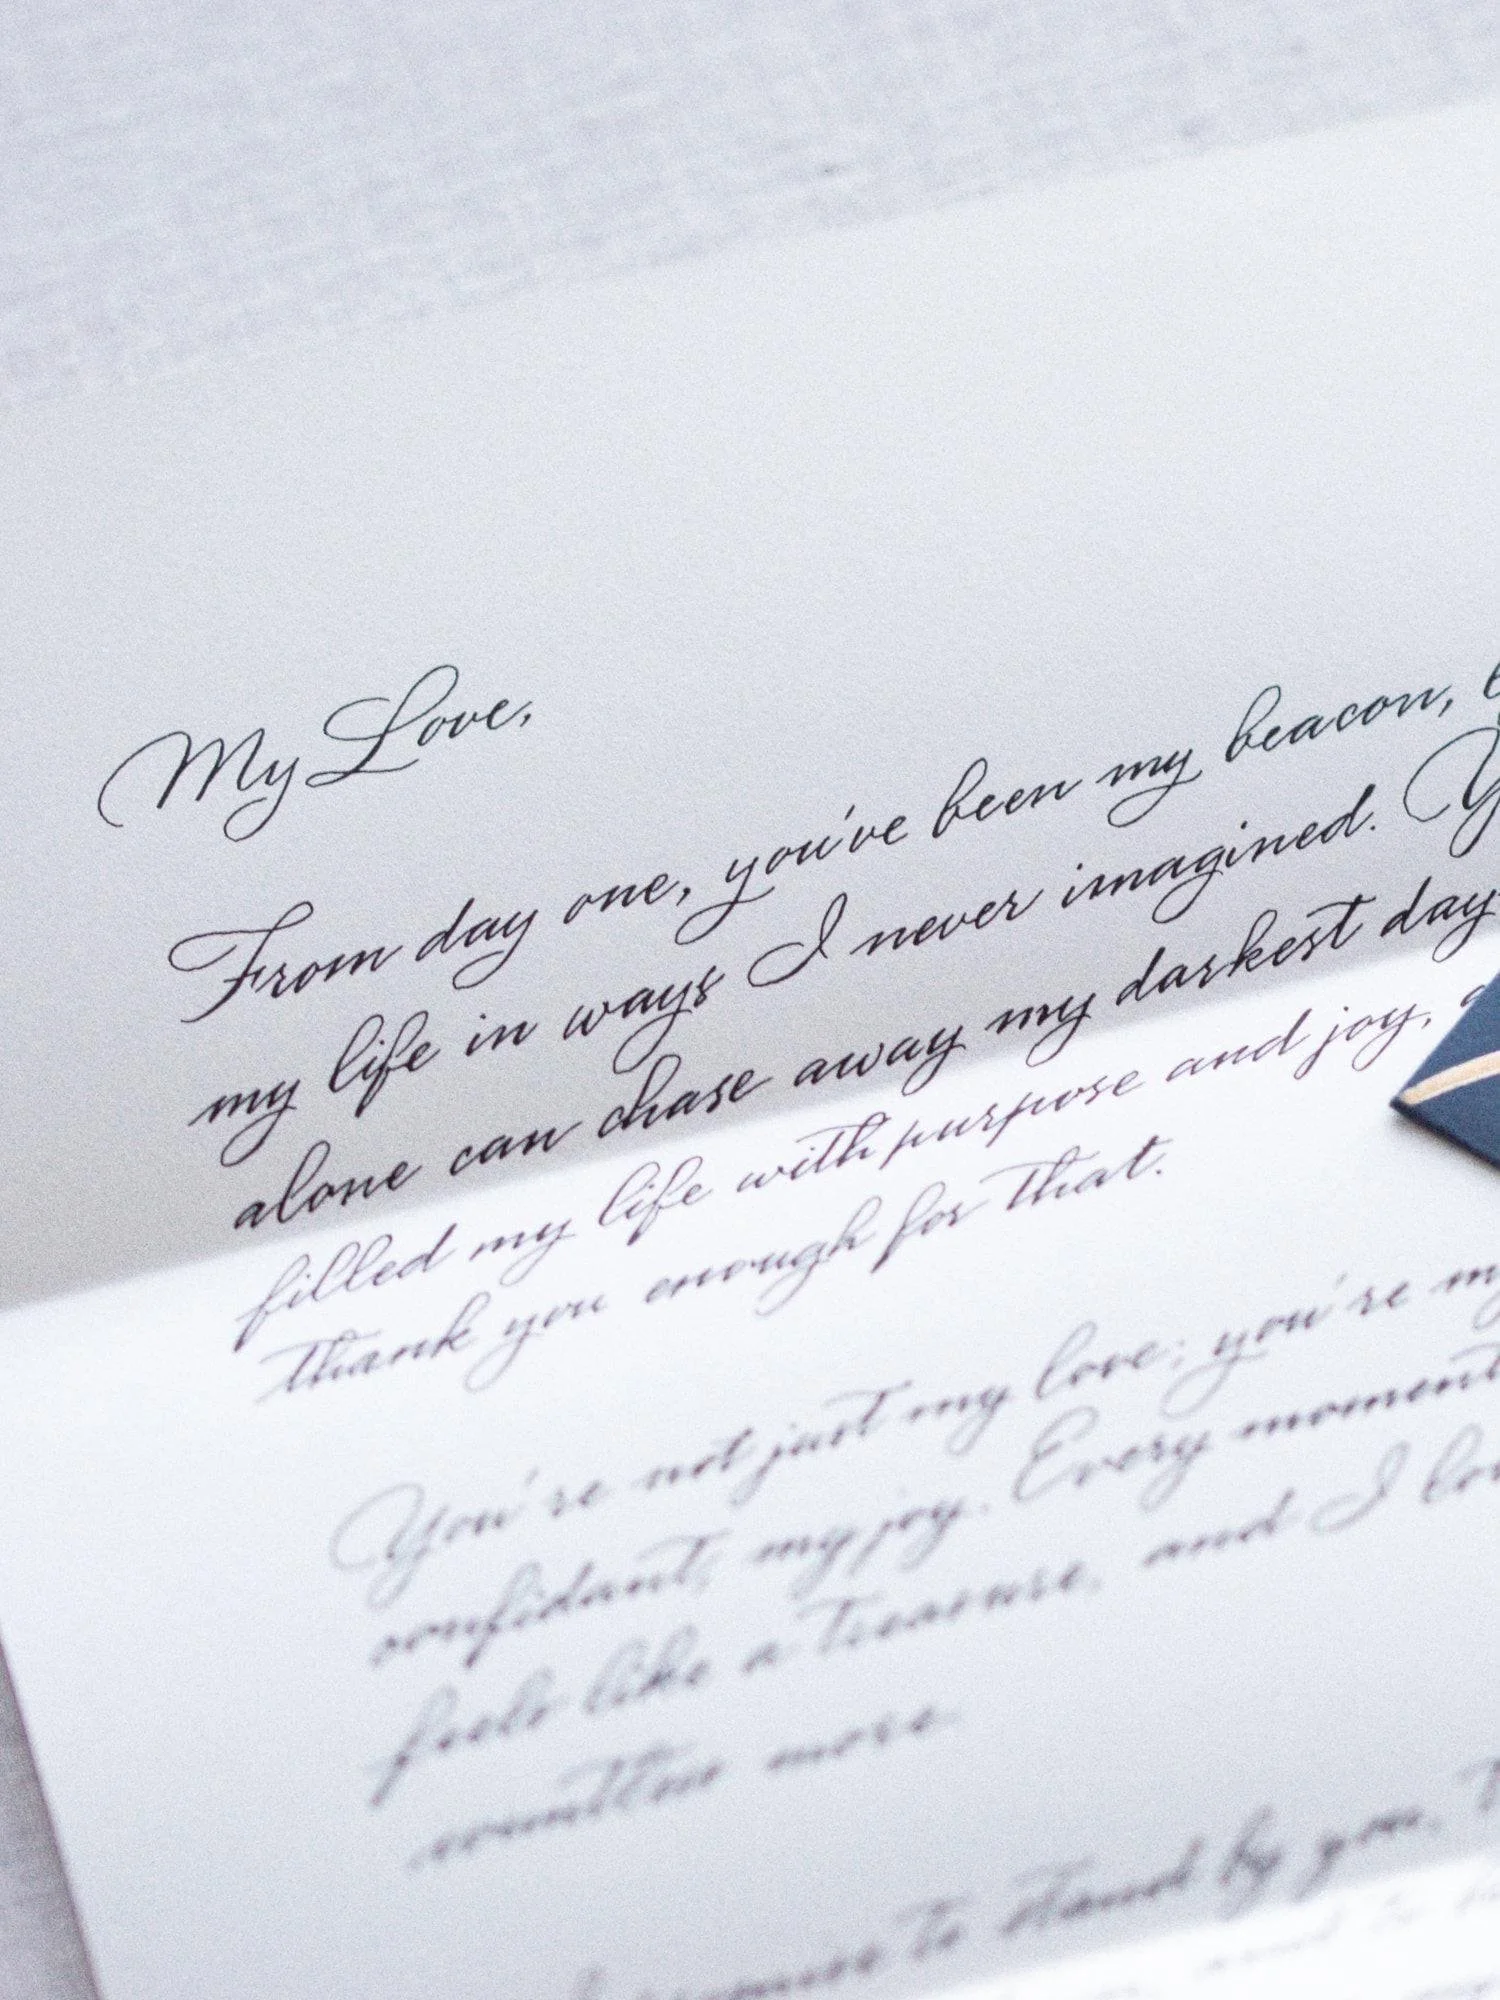 My Love,
From day one, you've been my beacon,
my life in ways I never imagined.
alone can chase away my darkest day
filled my life with purpose and joy,
Thank you enough for that.
You're not just my love; you're my
confidant, my joy. Every moment
feels like a treasure, and I
countless more.
I promise to stand by you,